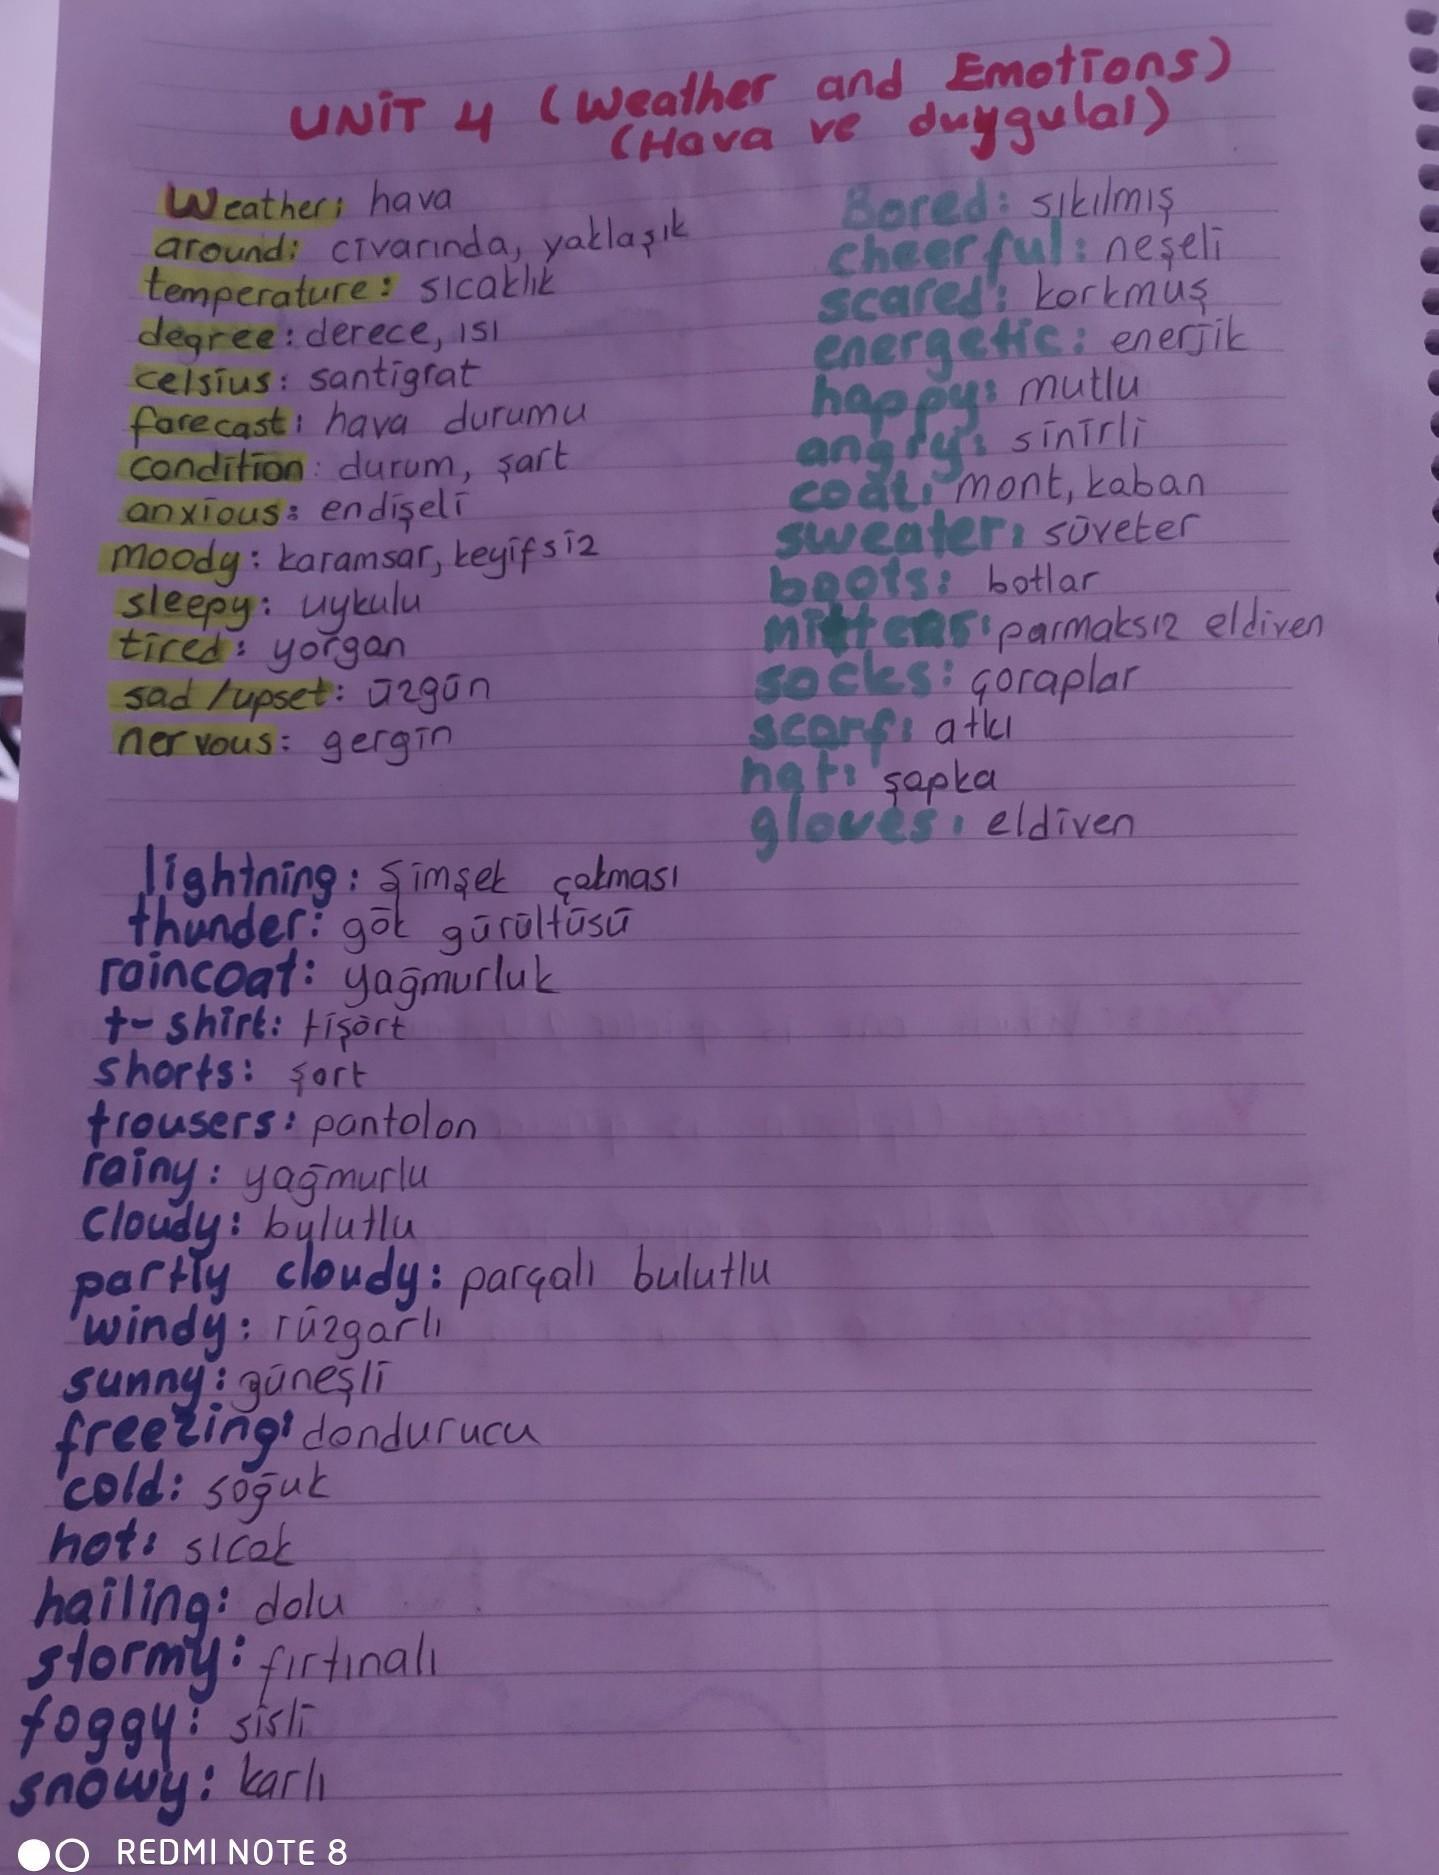 UNİT 4 (Weather and Emotions)
(Hava ve duygular)
Weather; hava
around: civarında, yaklaşık
temperature: sıcaklık
degree: derece, ısı
celsius: santigrat
forecast: hava durumu
condition: durum, şart
anxious: endişeli
moody: karamsar, keyifsiz
sleepy: uykulu
tired: yorgan
sad /upset: üzgün
nervous: gergin
Bored: sıkılmış
cheerful: neşeli
scared: korkmuş
energetic: enerjik
happy: mutlu
angry: sinirli
coat: mont, kaban
sweater: süveter
boots: botlar
mittens: parmaksız eldiven
socks: çoraplar
scarf: atkı
hat: şapka
gloves: eldiven
lightning: Şimşek çakması
thunder: gök gürültüsü
raincoat: yağmurluk
t-shirt: tişört
shorts: şort
trousers: pantolon
rainy: yağmurlu
cloudy: bulutlu
partly cloudy: parçalı bulutlu
windy: rüzgarlı
sunny: güneşli
freezing: dondurucu
cold: soğuk
hot: sıcak
hailing: dolu
stormy: fırtınalı
foggy: sisli
snowy: karlı
REDMI NOTE 8